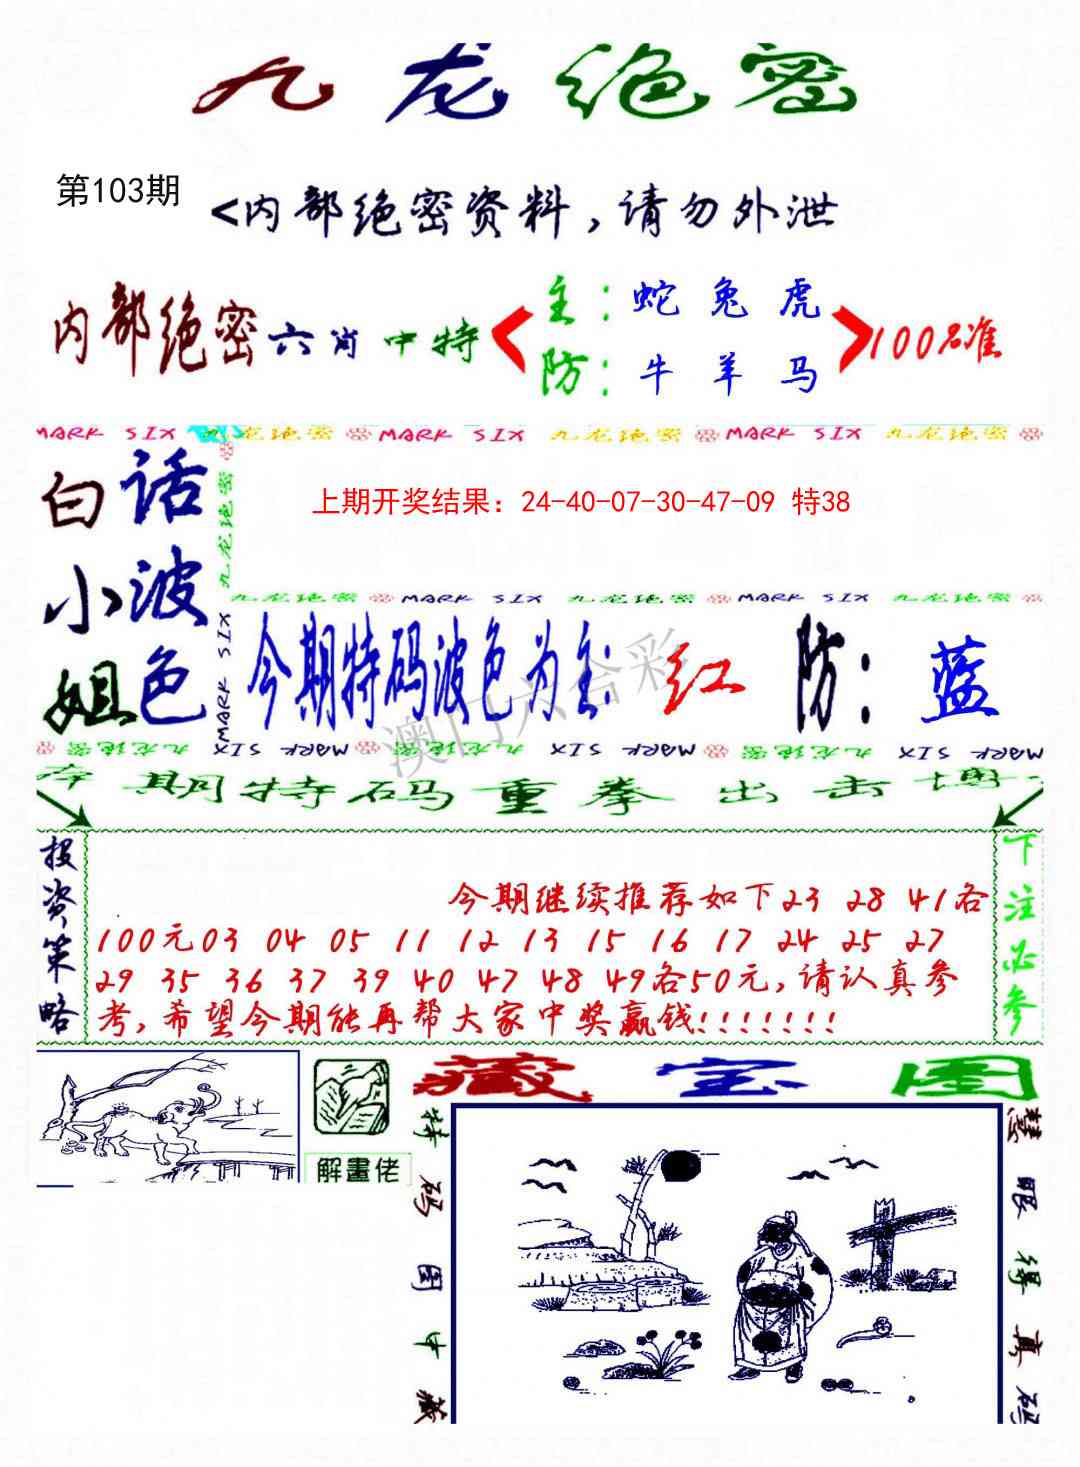 九龙绝密
第103期
<内部绝密资料,请勿外泄
内部绝密六肖中特
主:蛇兔虎
防:牛羊马
100%准
MARK SIX 九龙绝密 MARK SIX 九龙绝密 MARK SIX 九龙绝密
九龙绝密
MARK SIX
白小姐
话波色
上期开奖结果：24-40-07-30-47-09 特38
九龙绝密 MARK SIX 九龙绝密 MARK SIX 九龙绝密
今期特码波色为主:红 防:蓝
澳门六合彩
九龙绝密 MARK SIX 九龙绝密 MARK SIX 九龙绝密 MARK SIX
期特码重拳出击博
投资策略
今期继续推荐如下23 28 41各
100元03 04 05 11 12 13 15 16 17 24 25 27
29 35 36 37 39 40 47 48 49各50元,请认真参
考,希望今期能再帮大家中奖赢钱!!!!!!!
下注必参
解畫佬
藏宝图
特码图中藏
慧眼得真码